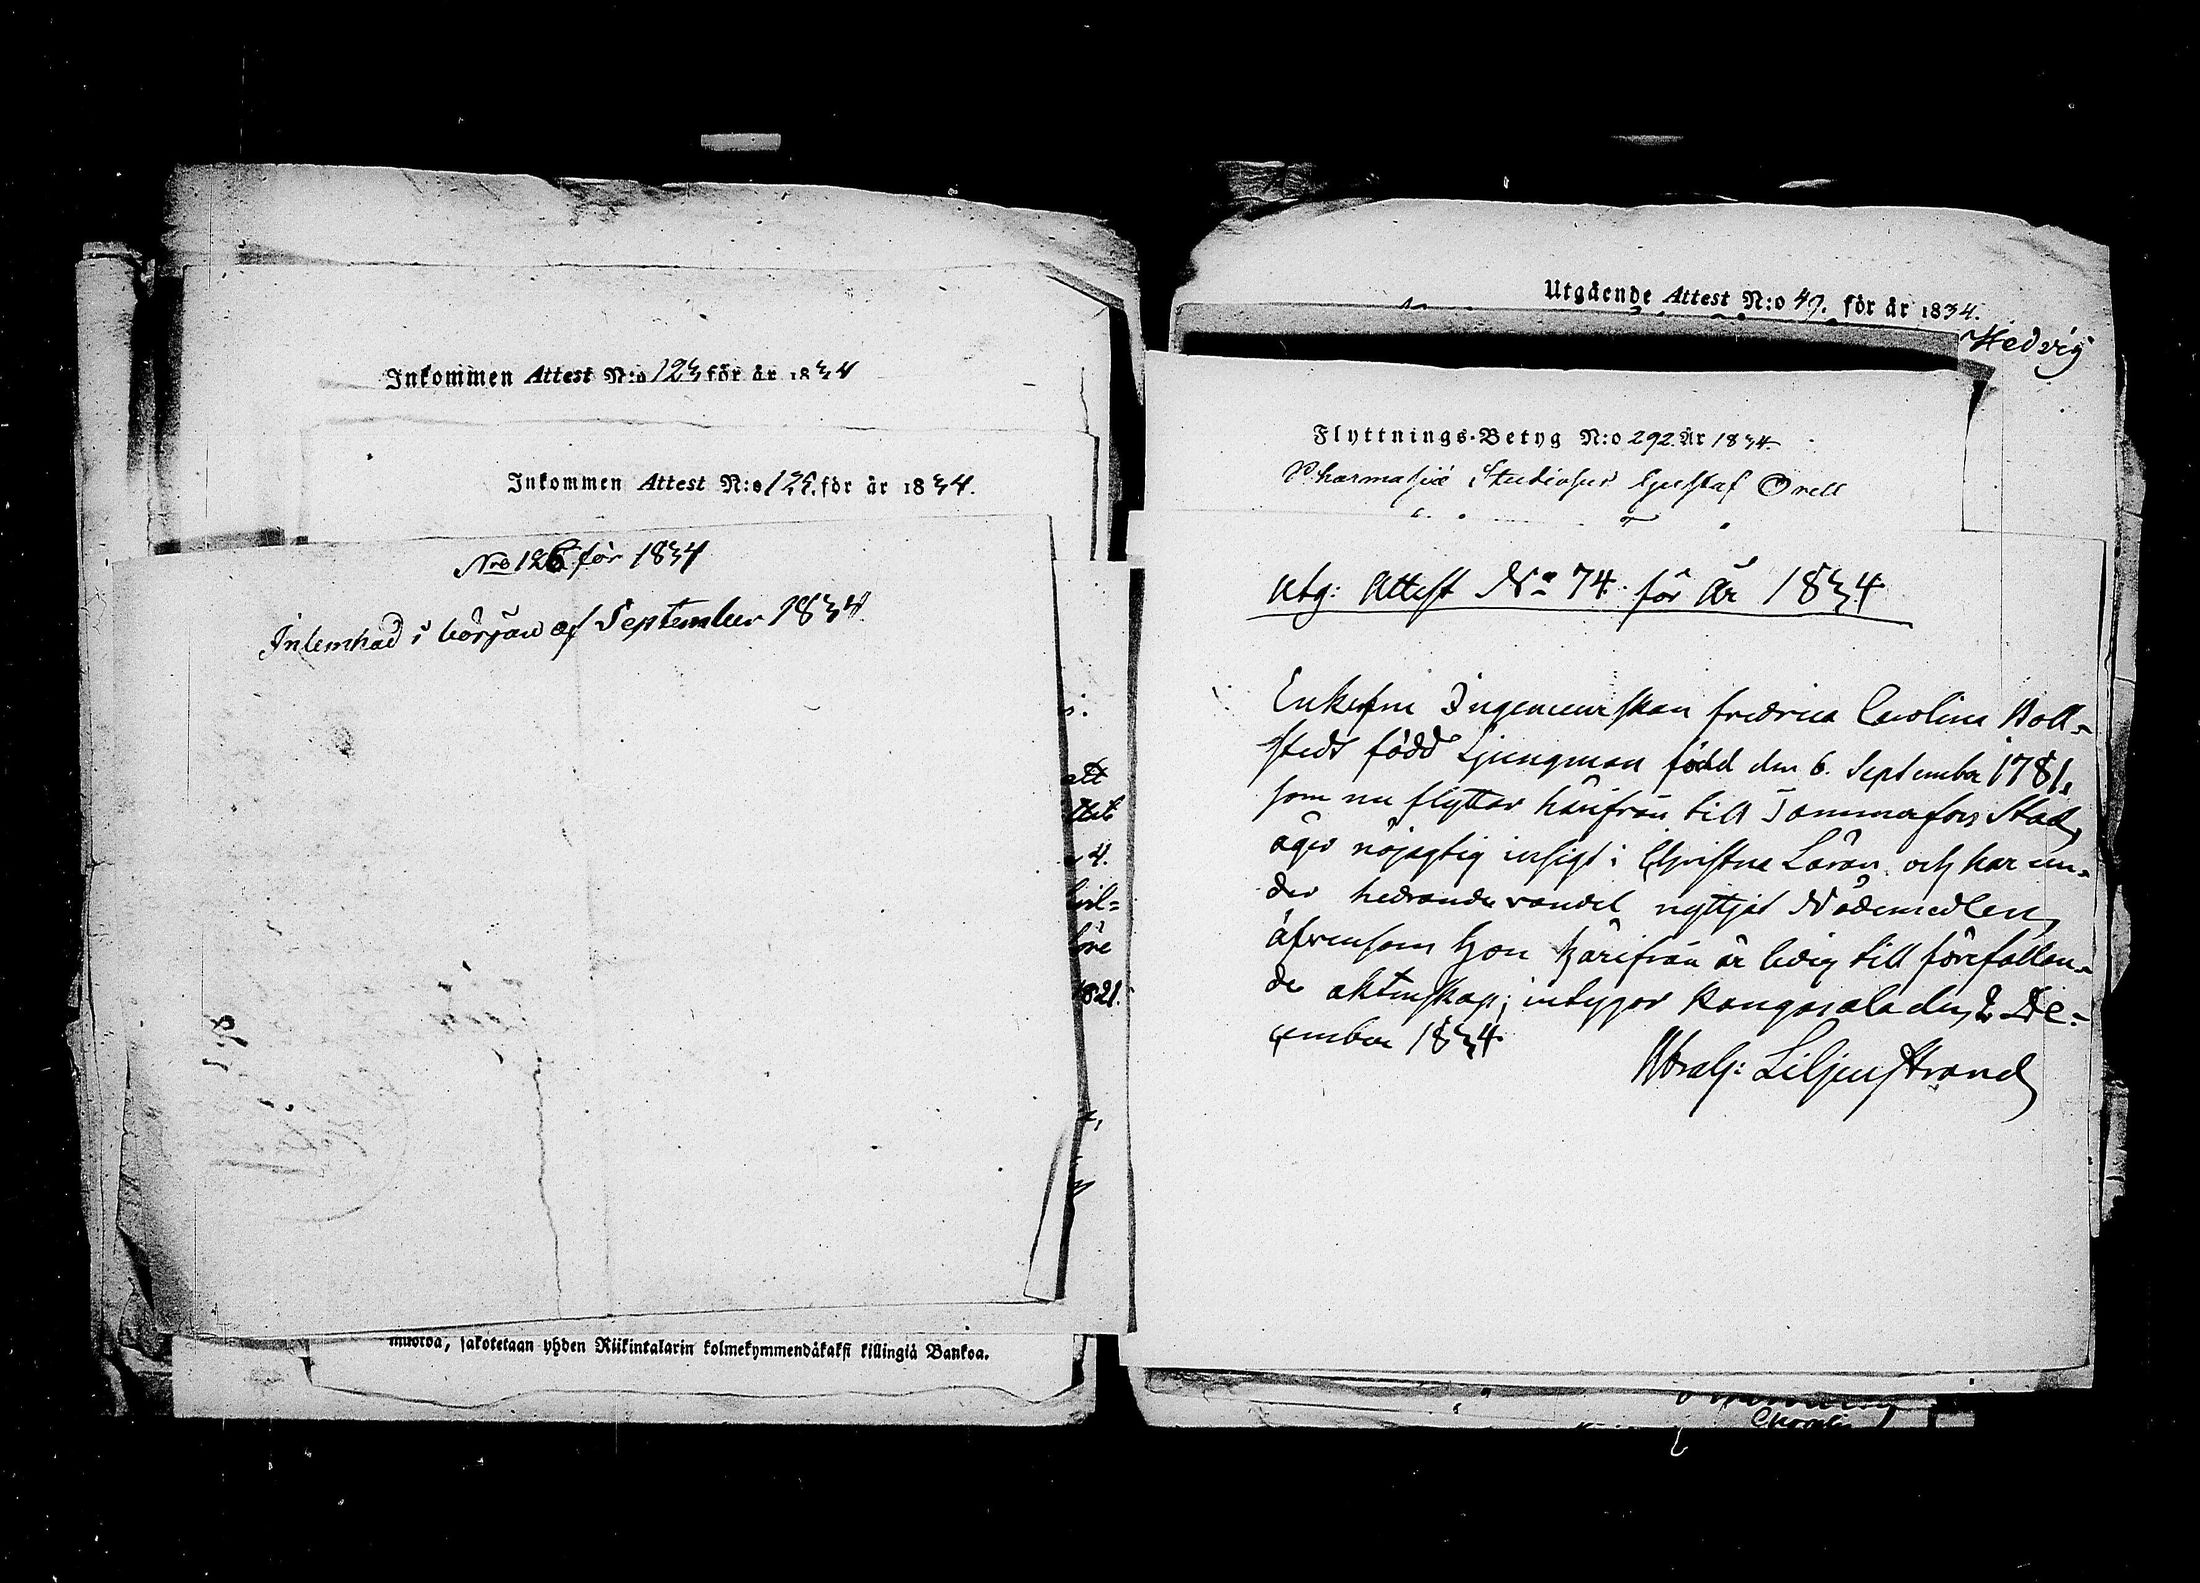 Inkommen Attest N:o 123 för år 1834
Inkommen Attest N:o 125. för år 1834.
Nro 126 för 1834
Inlemnad i början af September 1834.
muotoa, sakotetaan yhden Riikintalarin kolmekymmendäkaksi killingiä Bankoa.
ett
1821.
Utgående Attest N:o 49. för år 1834.
Hedvig
Flyttnings-Betyg N:o 292. År 1834.
Pharmasiæ Studiosus Gustaf Orell
Utg: Attest No 74. för År 1834.
Enkefru Ingenieurskan Fredrica Carolina Boll-
stedt född Ljungman född den 6. September 1781,
som nu flyttar härifrån till Tammerfors Stad,
äger nöjagtig insigt i Christna Läran och har un-
der hedrande vandel nyttjat Nådemedlen,
äfvensom hon härifrån är ledig till förefallan-
de äktenskap; intygar Kangasala den 2 De-
cember 1834.
Abrah: Liljenstrand